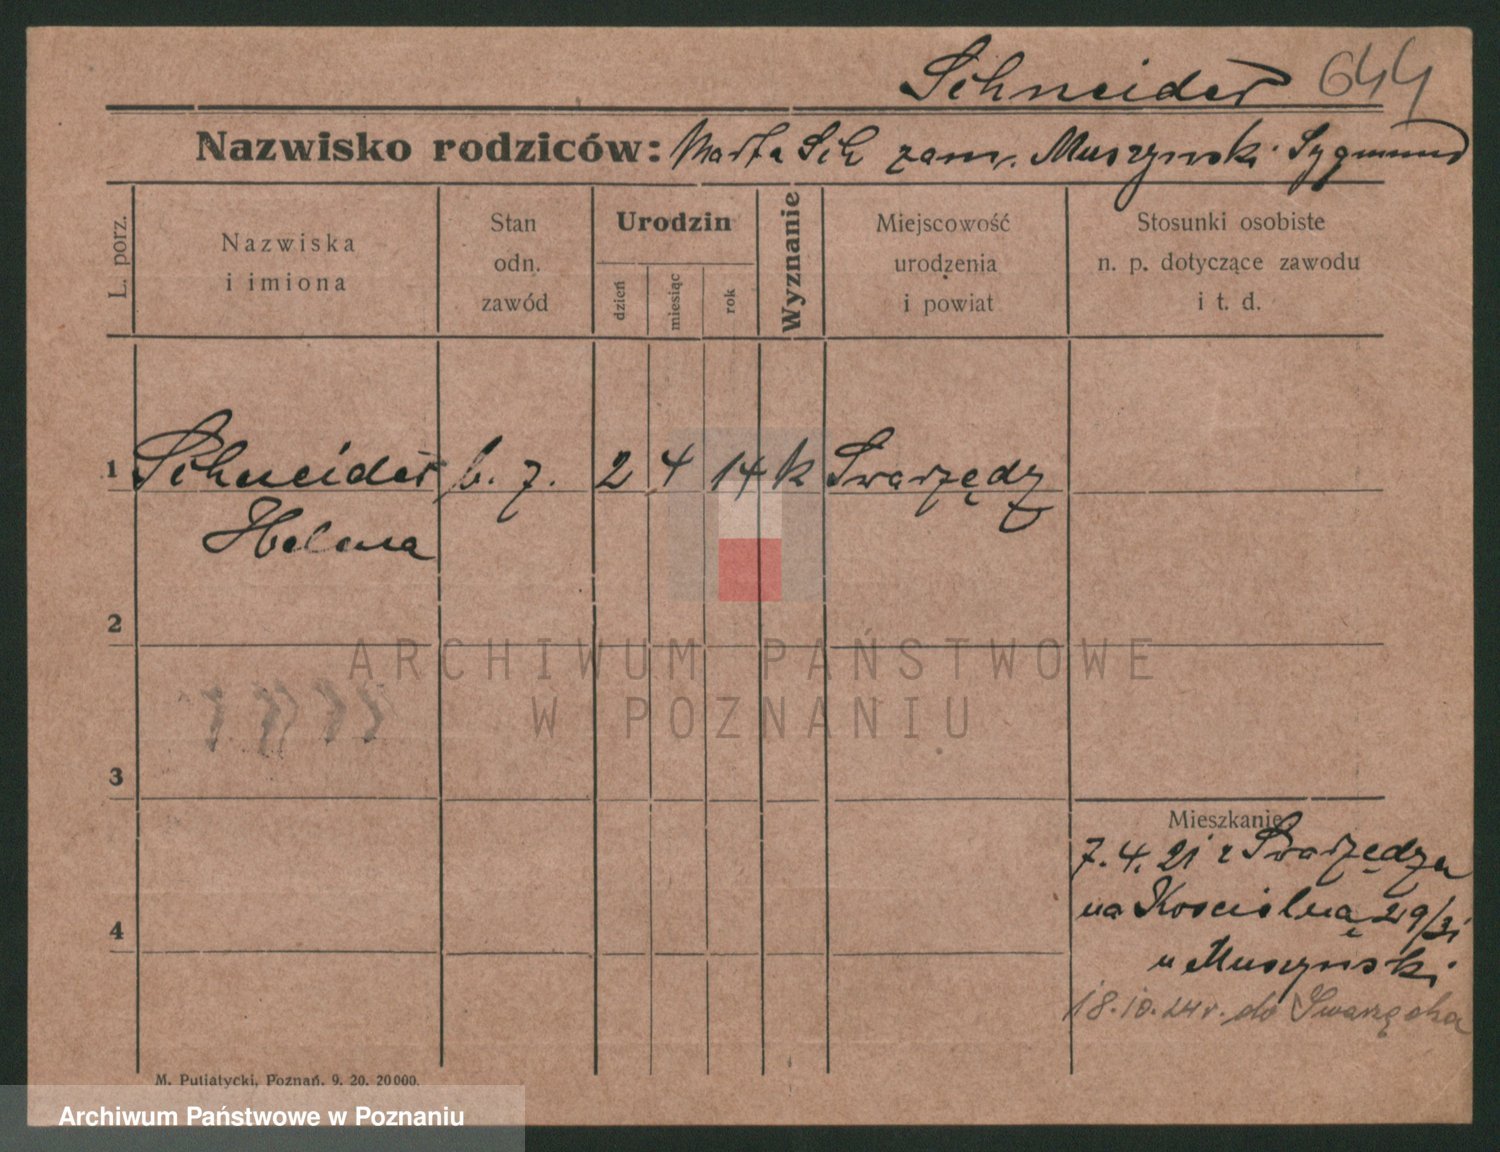 Schneider 644
Nazwisko rodziców: Marta Sch zam. Muszynski Sygmund
L. porz.
Nazwiska
i imiona
Stan
odn.
zawód
Urodzin
dzień
miesiąc
rok
Wyznanie
Miejscowość
urodzenia
i powiat
Stosunki osobiste
n. p. dotyczące zawodu
i t. d.
1 Schneider b. z. 2 4 14 k Swarzędz
Helena
2
ARCHIWUM PAŃSTWOWE
W POZNANIU
3
Mieszkanie
7. 4. 21 z Swarzędza
na Koscielną 29/31
u Muszynski
4
18.10.24r. do Swarzędza
M. Putiatycki, Poznań. 9. 20. 20000.
Archiwum Państwowe w Poznaniu